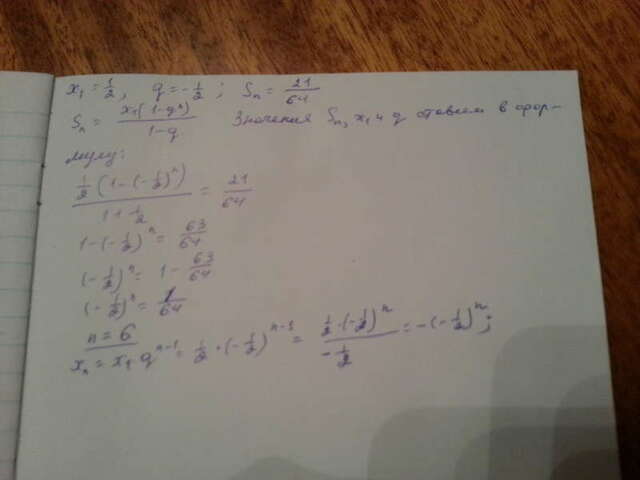 x₁ = 1/2, q = -1/2; Sₙ = 21/64
Sₙ = x₁(1-qⁿ)/1-q. Значения Sₙ, x₁ и q ставим в фор-
мулу:
1/2(1-(-1/2)ⁿ)/1+1/2 = 21/64
1-(-1/2)ⁿ = 63/64
(-1/2)ⁿ = 1 - 63/64
(-1/2)ⁿ = 1/64
n = 6
xₙ = x₁ qⁿ⁻¹ = 1/2 · (-1/2)ⁿ⁻¹ = 1/2 · (-1/2)ⁿ/-1/2 = -(-1/2)ⁿ;